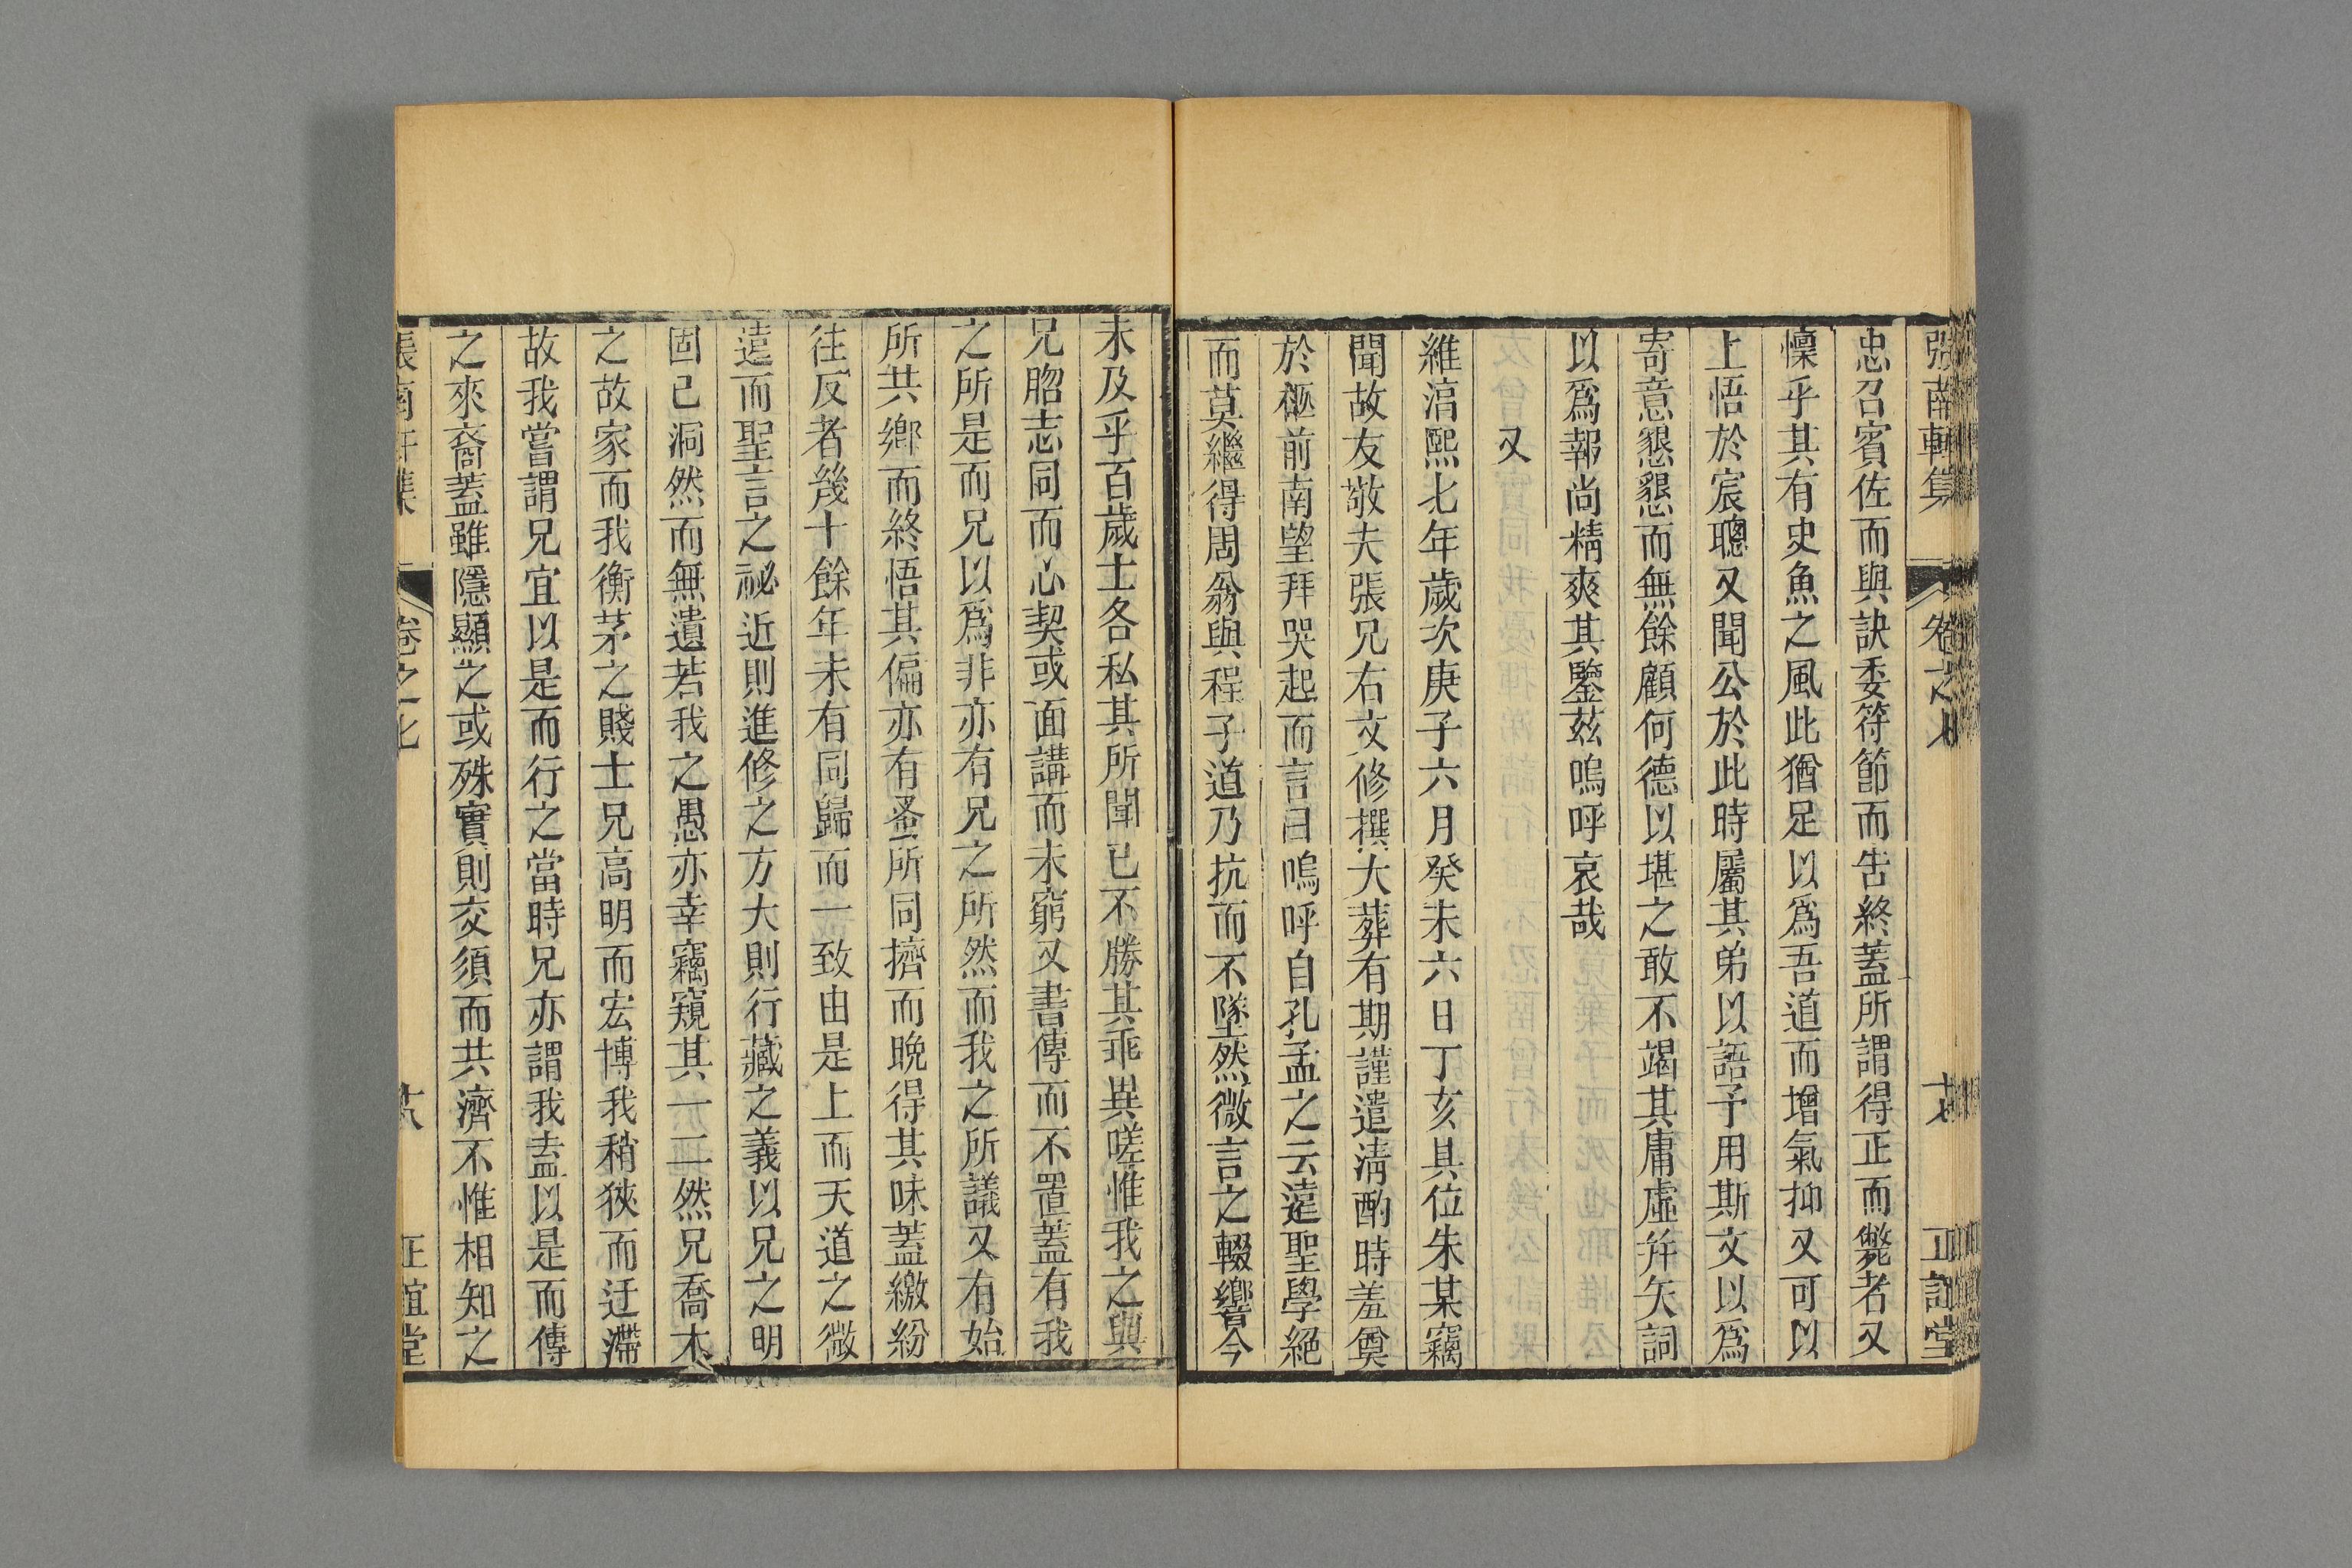 張南軒集 卷之七 十八 正誼堂
忠召賓佐而與訣委符節而告終蓋所謂得正而斃者又
懍乎其有史魚之風此猶足以為吾道而增氣抑又可以
上悟於宸聰又聞公於此時屬其弟以語予用斯文以為
寄意懇懇而無餘顧何德以堪之敢不竭其庸虛并矢詞
以為報尚精爽其鑒茲嗚呼哀哉
又
維淳熙七年歲次庚子六月癸未六日丁亥具位朱某竊
聞故友敬夫張兄右文修撰大葬有期謹遣清酌時羞奠
於柩前南望拜哭起而言曰嗚呼自孔孟之云遠聖學絕
而莫繼得周翁與程子道乃抗而不墜然微言之輟響今
未及乎百歲士各私其所聞已不勝其乖異嗟惟我之與
兄脗志同而心契或面講而未窮又書傳而不置蓋有我
之所是而兄以為非亦有兄之所然而我之所議又有始
所共鄉而終悟其偏亦有蚤所同擠而晚得其味蓋繳紛
往反者幾十餘年未有同歸而一致由是上而天道之微
遠而聖言之祕近則進修之方大則行藏之義以兄之明
固已洞然而無遺若我之愚亦幸竊窺其一二然兄喬木
之故家而我衡茅之賤士兄高明而宏博我稍狹而迂滯
故我嘗謂兄宜以是而行之當時兄亦謂我盍以是而傳
之來裔蓋雖隱顯之或殊實則交須而共濟不惟相知之
張南軒集 卷之七 十八 正誼堂